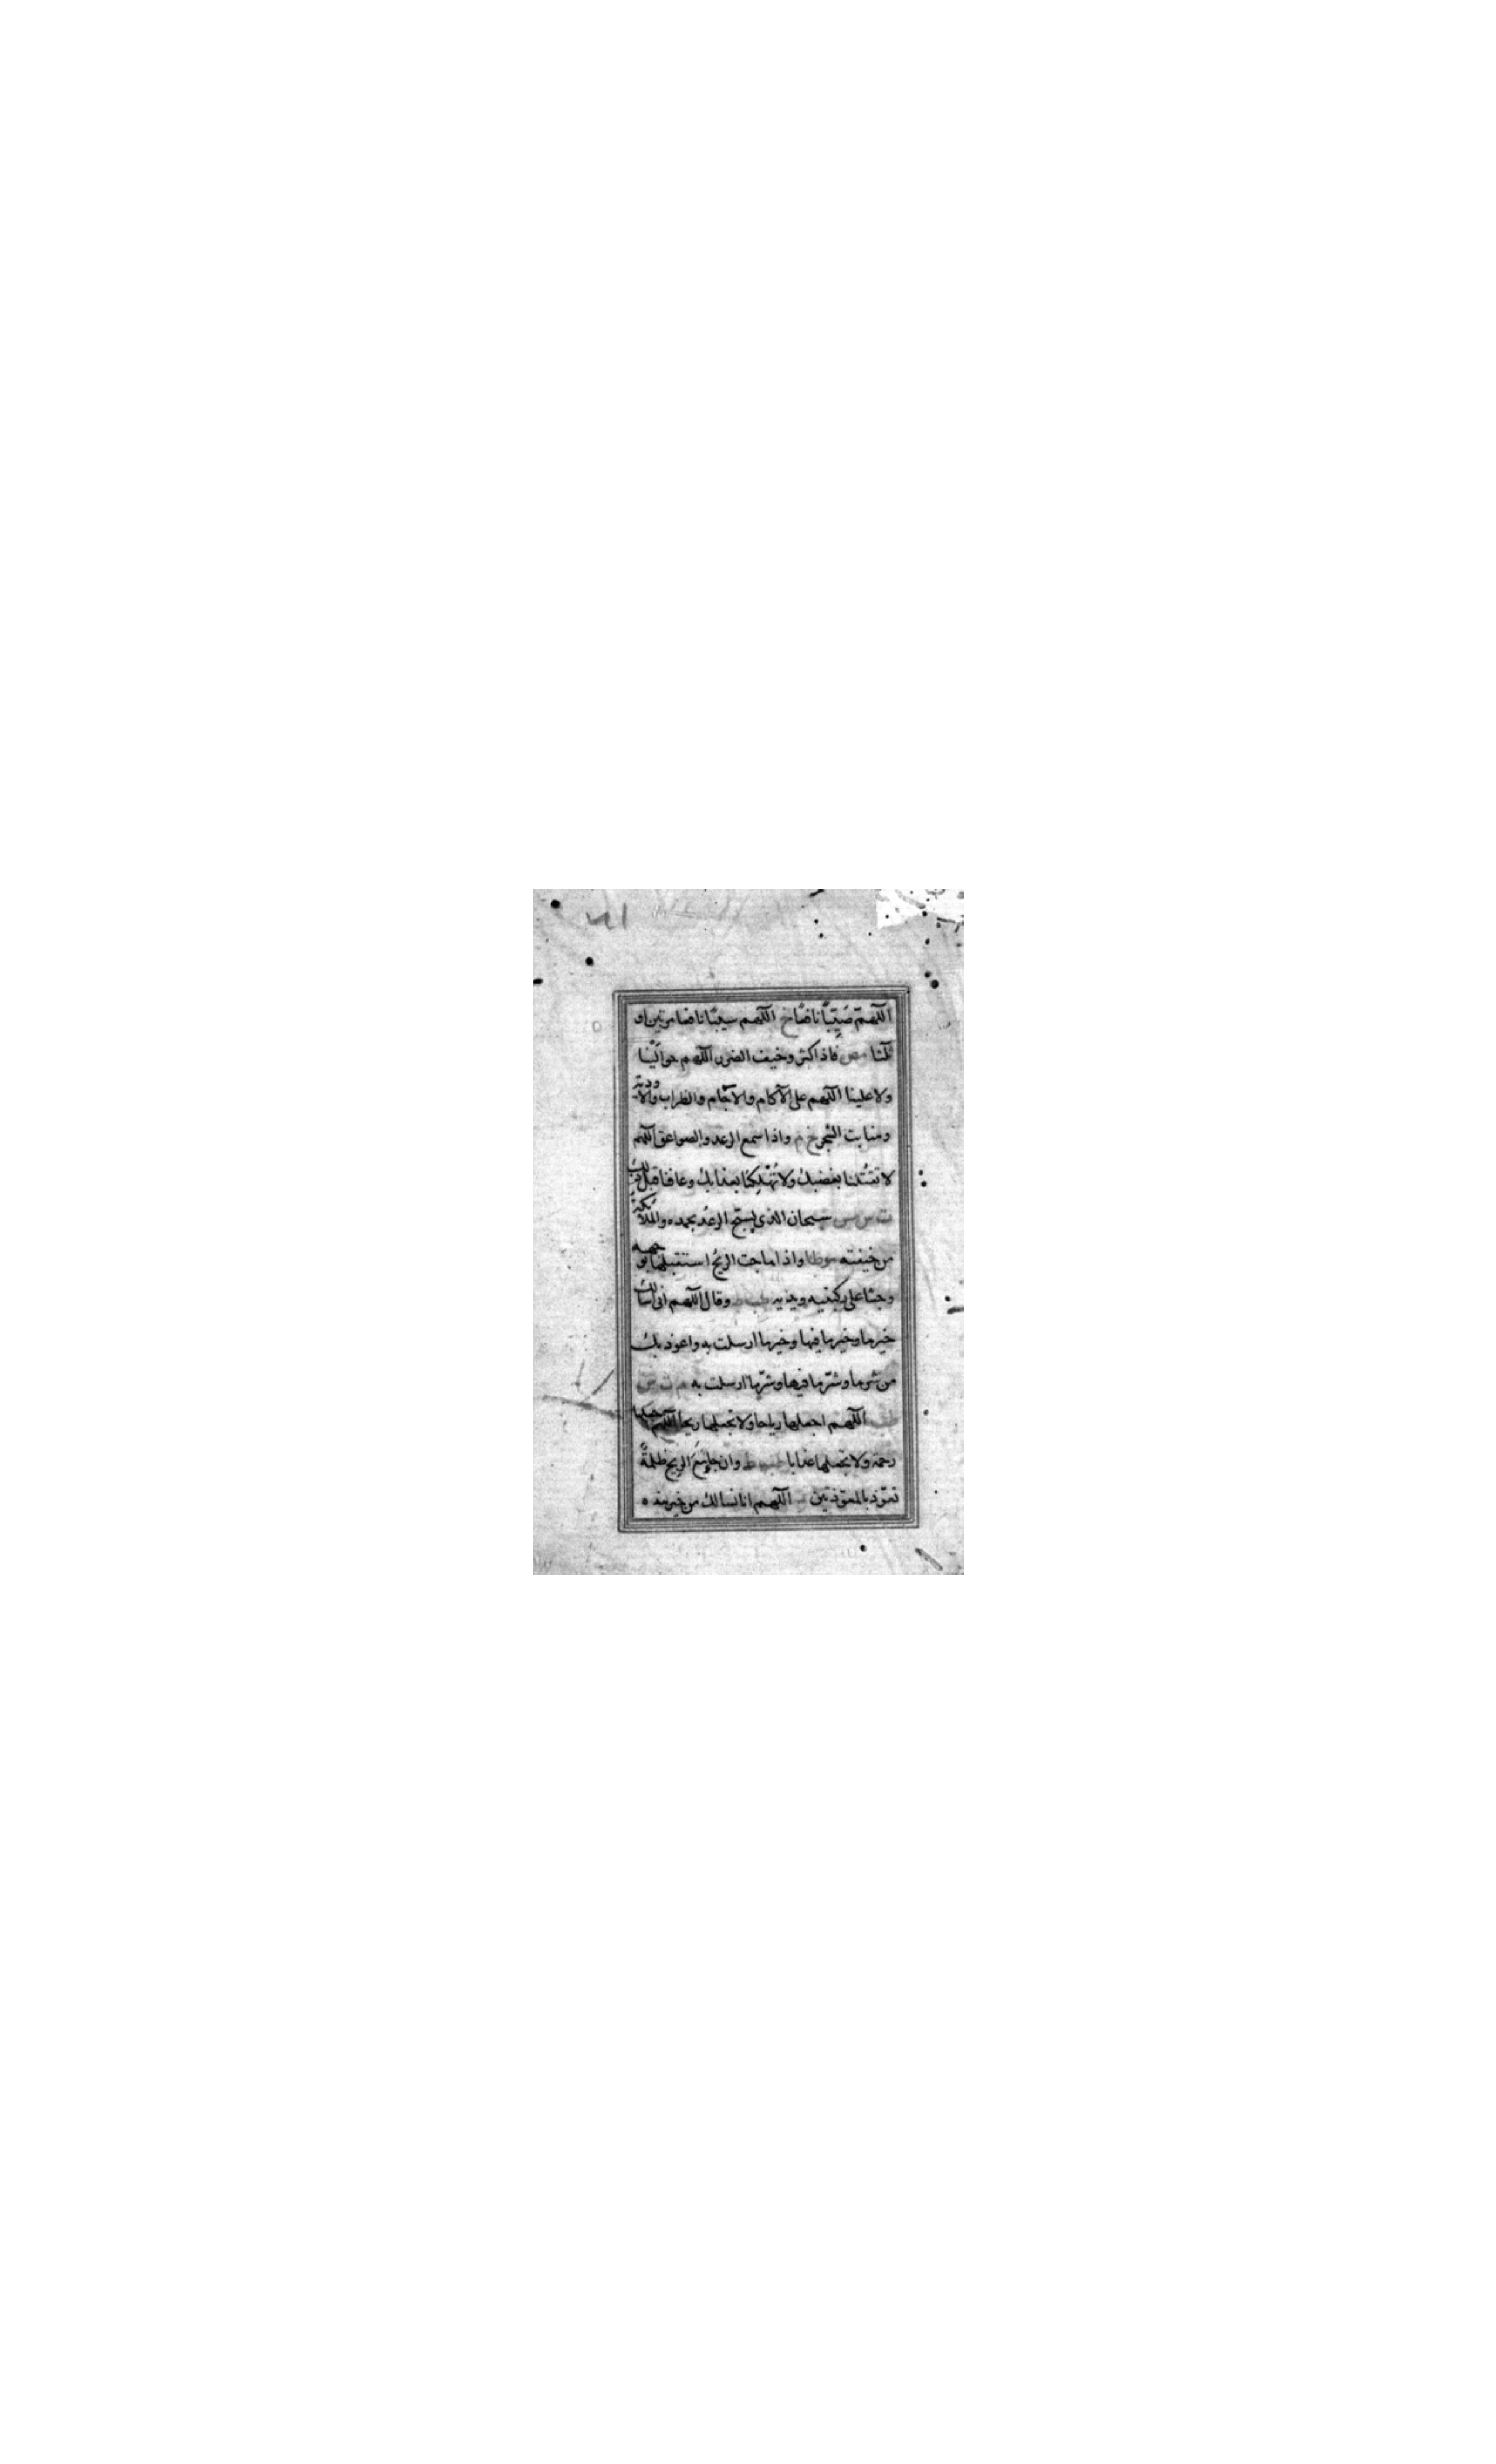 اللهمّ صَيِّبًا نافعًا خ اللهم سيبًا نافعا مرتين او
ثلثا مص فاذا كثر وخيف الضرر اللهم حوالَيْنا
ولا علينا اللهم على الآكام والاجام والظراب والاودية
ومنابت الشجر خ م واذا سمع الرعد والصواعق اللهم
لا تقتُلنا بغضبك ولا تُهْلِكنا بعذابك وعافنا قبل ذلك
ت س مس سبحان الذى يسبّح الرعدُ بحمده والملائكةُ
من خيفته موطا واذا هاجت الريحُ استقبلها بوجهه
وجثا على ركبتيه ويديه ط وقال اللهم انى اسالك
خيرها وخير ما فيها وخير ما ارسلت به واعوذ بك
من شرها وشرّ ما فيها وشرّ ما ارسلت به م ت س
اللهم اجعلها رياحا ولا تجعلها ريحا اللهم اجعلها
رحمة ولا تجعلها عذابا ط وان جاء مع الريح ظلمةٌ
تعوّذ بالمعوّذتين اللهم انا نسالك من خير هذه